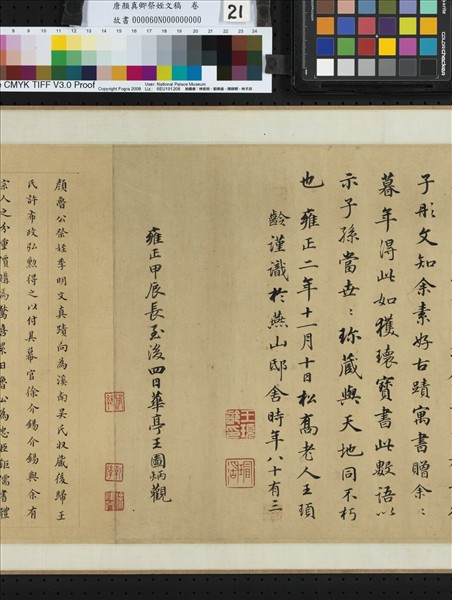 唐顏真卿祭姪文稿 卷
故書 000060N000000000
21
8 9 10 11 12 13 14 15 16 17 18 19 20 21 22 23 24
CMYK TIFF V3.0 Proof
Copyright Fogra 2008
User: National Palace Museum
colorchecker
子彤文知余素好古蹟寓書贈余〻
暮年得此如獲瓌寶書此數語以
示子孫當世〻珍藏與天地同不朽
也 雍正二年十一月十日松喬老人王頊
齡謹識於燕山邸舍時年八十有三
雍正甲辰長至後四日華亭王圖炳觀
顏魯公祭姪季明文真蹟向為溪南吳氏收藏後歸王
氏許布政弘勲得之以付其幕官徐介錫介錫與余有
宗人之分重價購